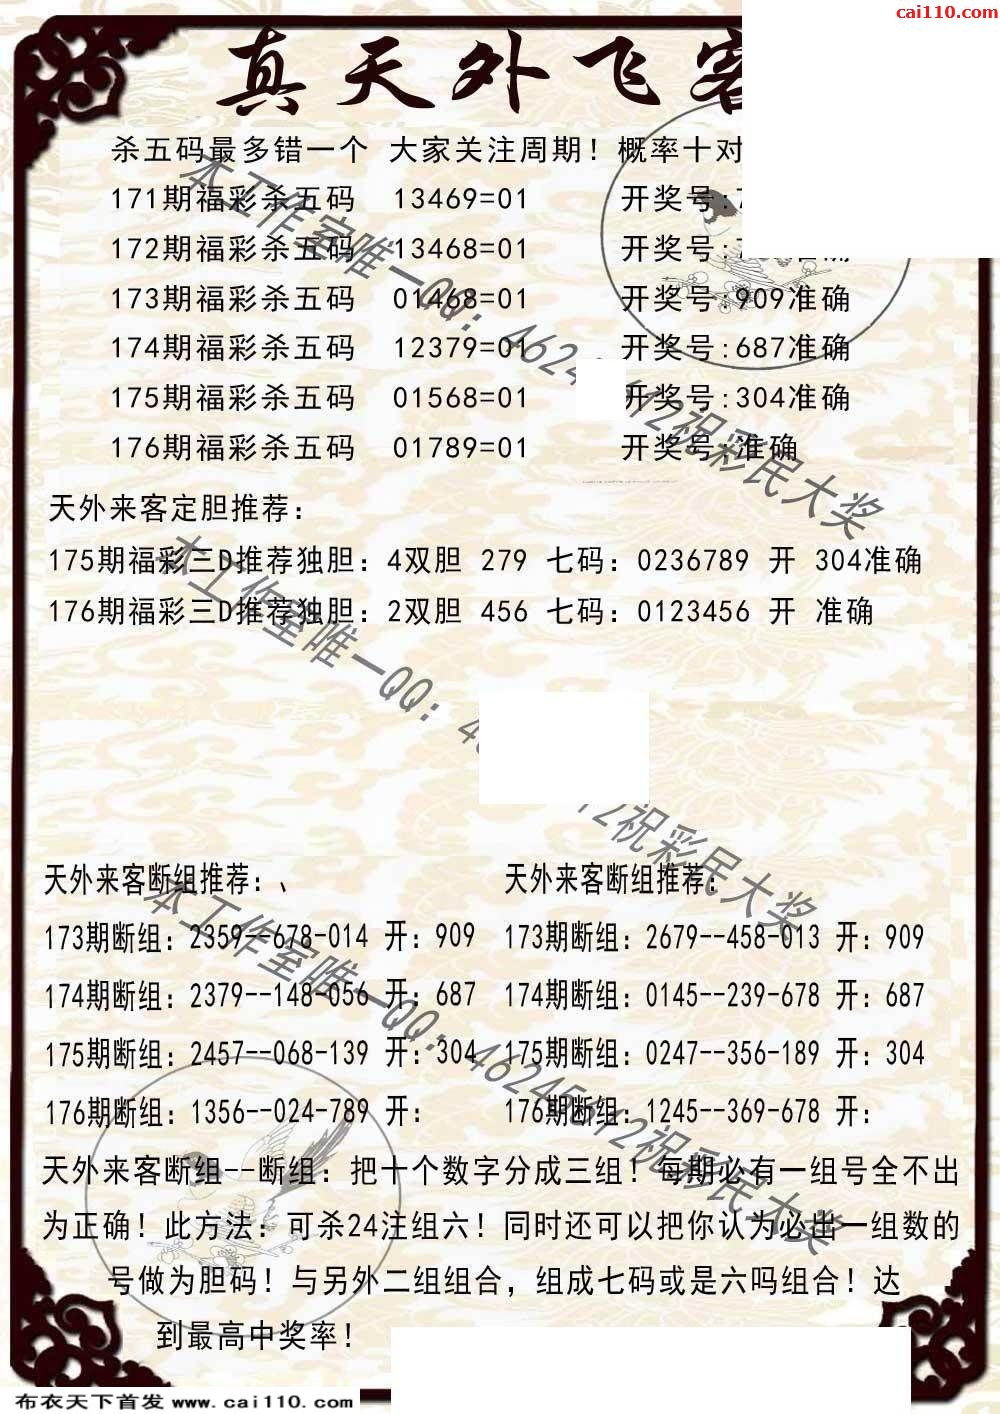 cai110.com
真天外飞客
杀五码最多错一个 大家关注周期！概率十对
171期福彩杀五码 13469=01 开奖号:
172期福彩杀五码 13468=01 开奖号:
173期福彩杀五码 01468=01 开奖号:909准确
174期福彩杀五码 12379=01 开奖号:687准确
175期福彩杀五码 01568=01 开奖号:304准确
176期福彩杀五码 01789=01 开奖号:准确
本工作室唯一QQ：4624 12祝彩民大奖
天外来客定胆推荐：
175期福彩三D推荐独胆：4双胆 279 七码：0236789 开 304准确
176期福彩三D推荐独胆：2双胆 456 七码：0123456 开 准确
本工作室唯一QQ：4 12祝彩民大奖
天外来客断组推荐：、 天外来客断组推荐：
173期断组：2359--678-014 开：909 173期断组：2679--458-013 开：909
174期断组：2379--148-056 开：687 174期断组：0145--239-678 开：687
175期断组：2457--068-139 开：304 175期断组：0247--356-189 开：304
176期断组：1356--024-789 开： 176期断组：1245--369-678 开：
本工作室唯一QQ：46245612祝彩民大奖
天外来客断组--断组：把十个数字分成三组！每期必有一组号全不出
为正确！此方法：可杀24注组六！同时还可以把你认为必出一组数的
号做为胆码！与另外二组组合，组成七码或是六吗组合！达
到最高中奖率！
布衣天下首发 www.cai110.com